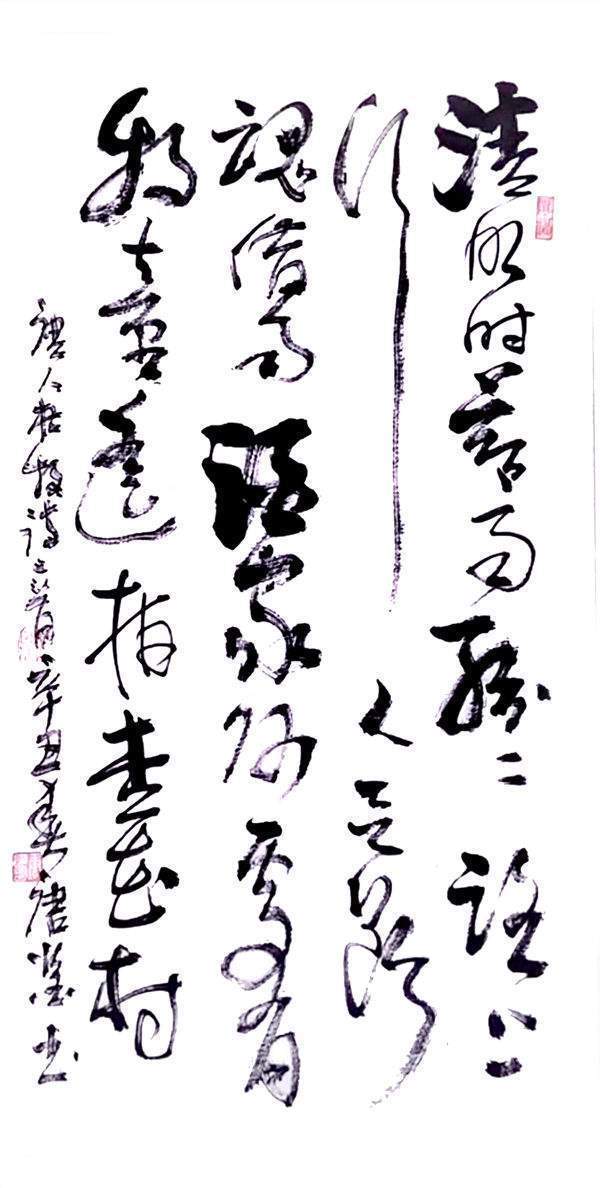 清明时节雨纷〻路上
行人欲断
魂借问酒家何处有
牧童遥指杏花村
唐人杜牧诗 辛丑春唐 书